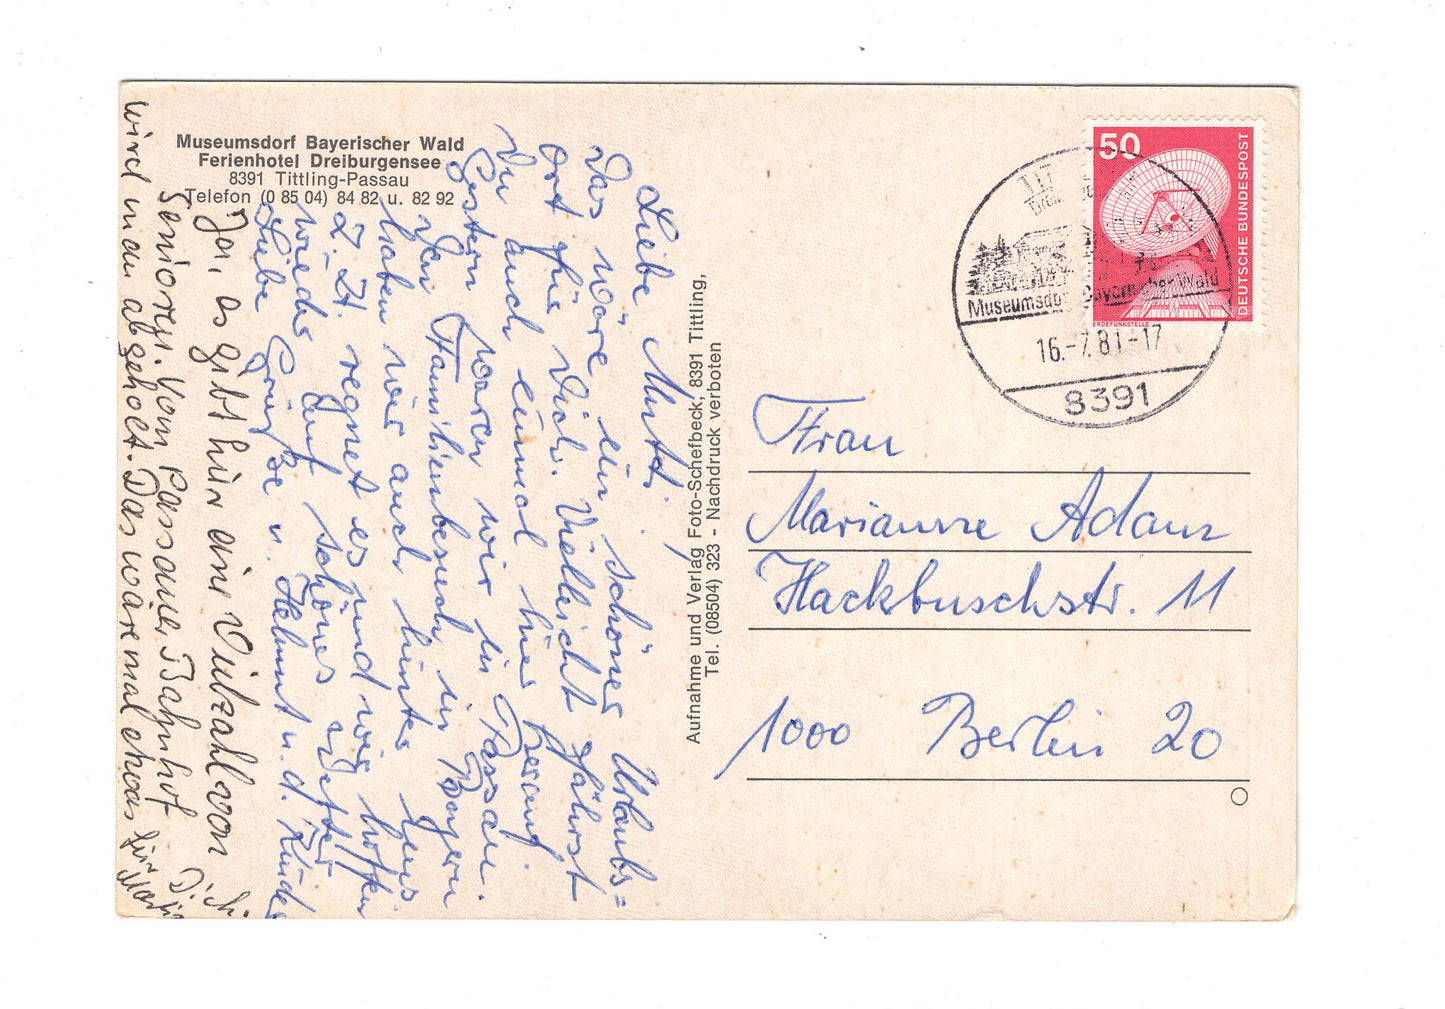 Museumsdorf Bayerischer Wald
Ferienhotel Dreiburgensee
8391 Tittling-Passau
Telefon (0 85 04) 84 82 u. 82 92
Liebe Mutti,
Das wäre ein schöner Urlaubs=
ort für Dich. Vielleicht fährst
Du auch einmal hier herauf.
Gestern waren wir in Passau.
Den Familienbesuch in Bayern
haben wir auch hinter uns
Z. Zt. regnet es und wir hoffen
wieder auf schönes Wetter
Liebe Grüße u. Helmut u. d. Kinder
Ja, es gibt hier eine Vielzahl von
Senioren. Vom Passauer Bahnhof
wird man abgeholt. Das wäre mal etwas für
Dich.
Aufnahme und Verlag Foto-Schefbeck, 8391 Tittling,
Tel. (08504) 323 - Nachdruck verboten
50
DEUTSCHE BUNDESPOST
ERDEFUNKSTELLE
Museumsdorf Bayerischer Wald
16.-7.81-17
8391
Frau
Marianne Adam
Hackbuschstr. 11
1000 Berlin 20